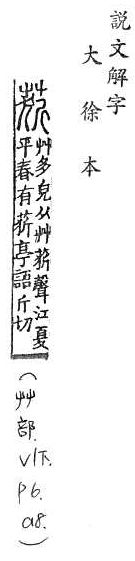 説文解字
大徐本
艸多皃从艸聲江夏
平春有亭語斤切
(艸部.V1下.P6.a8.)